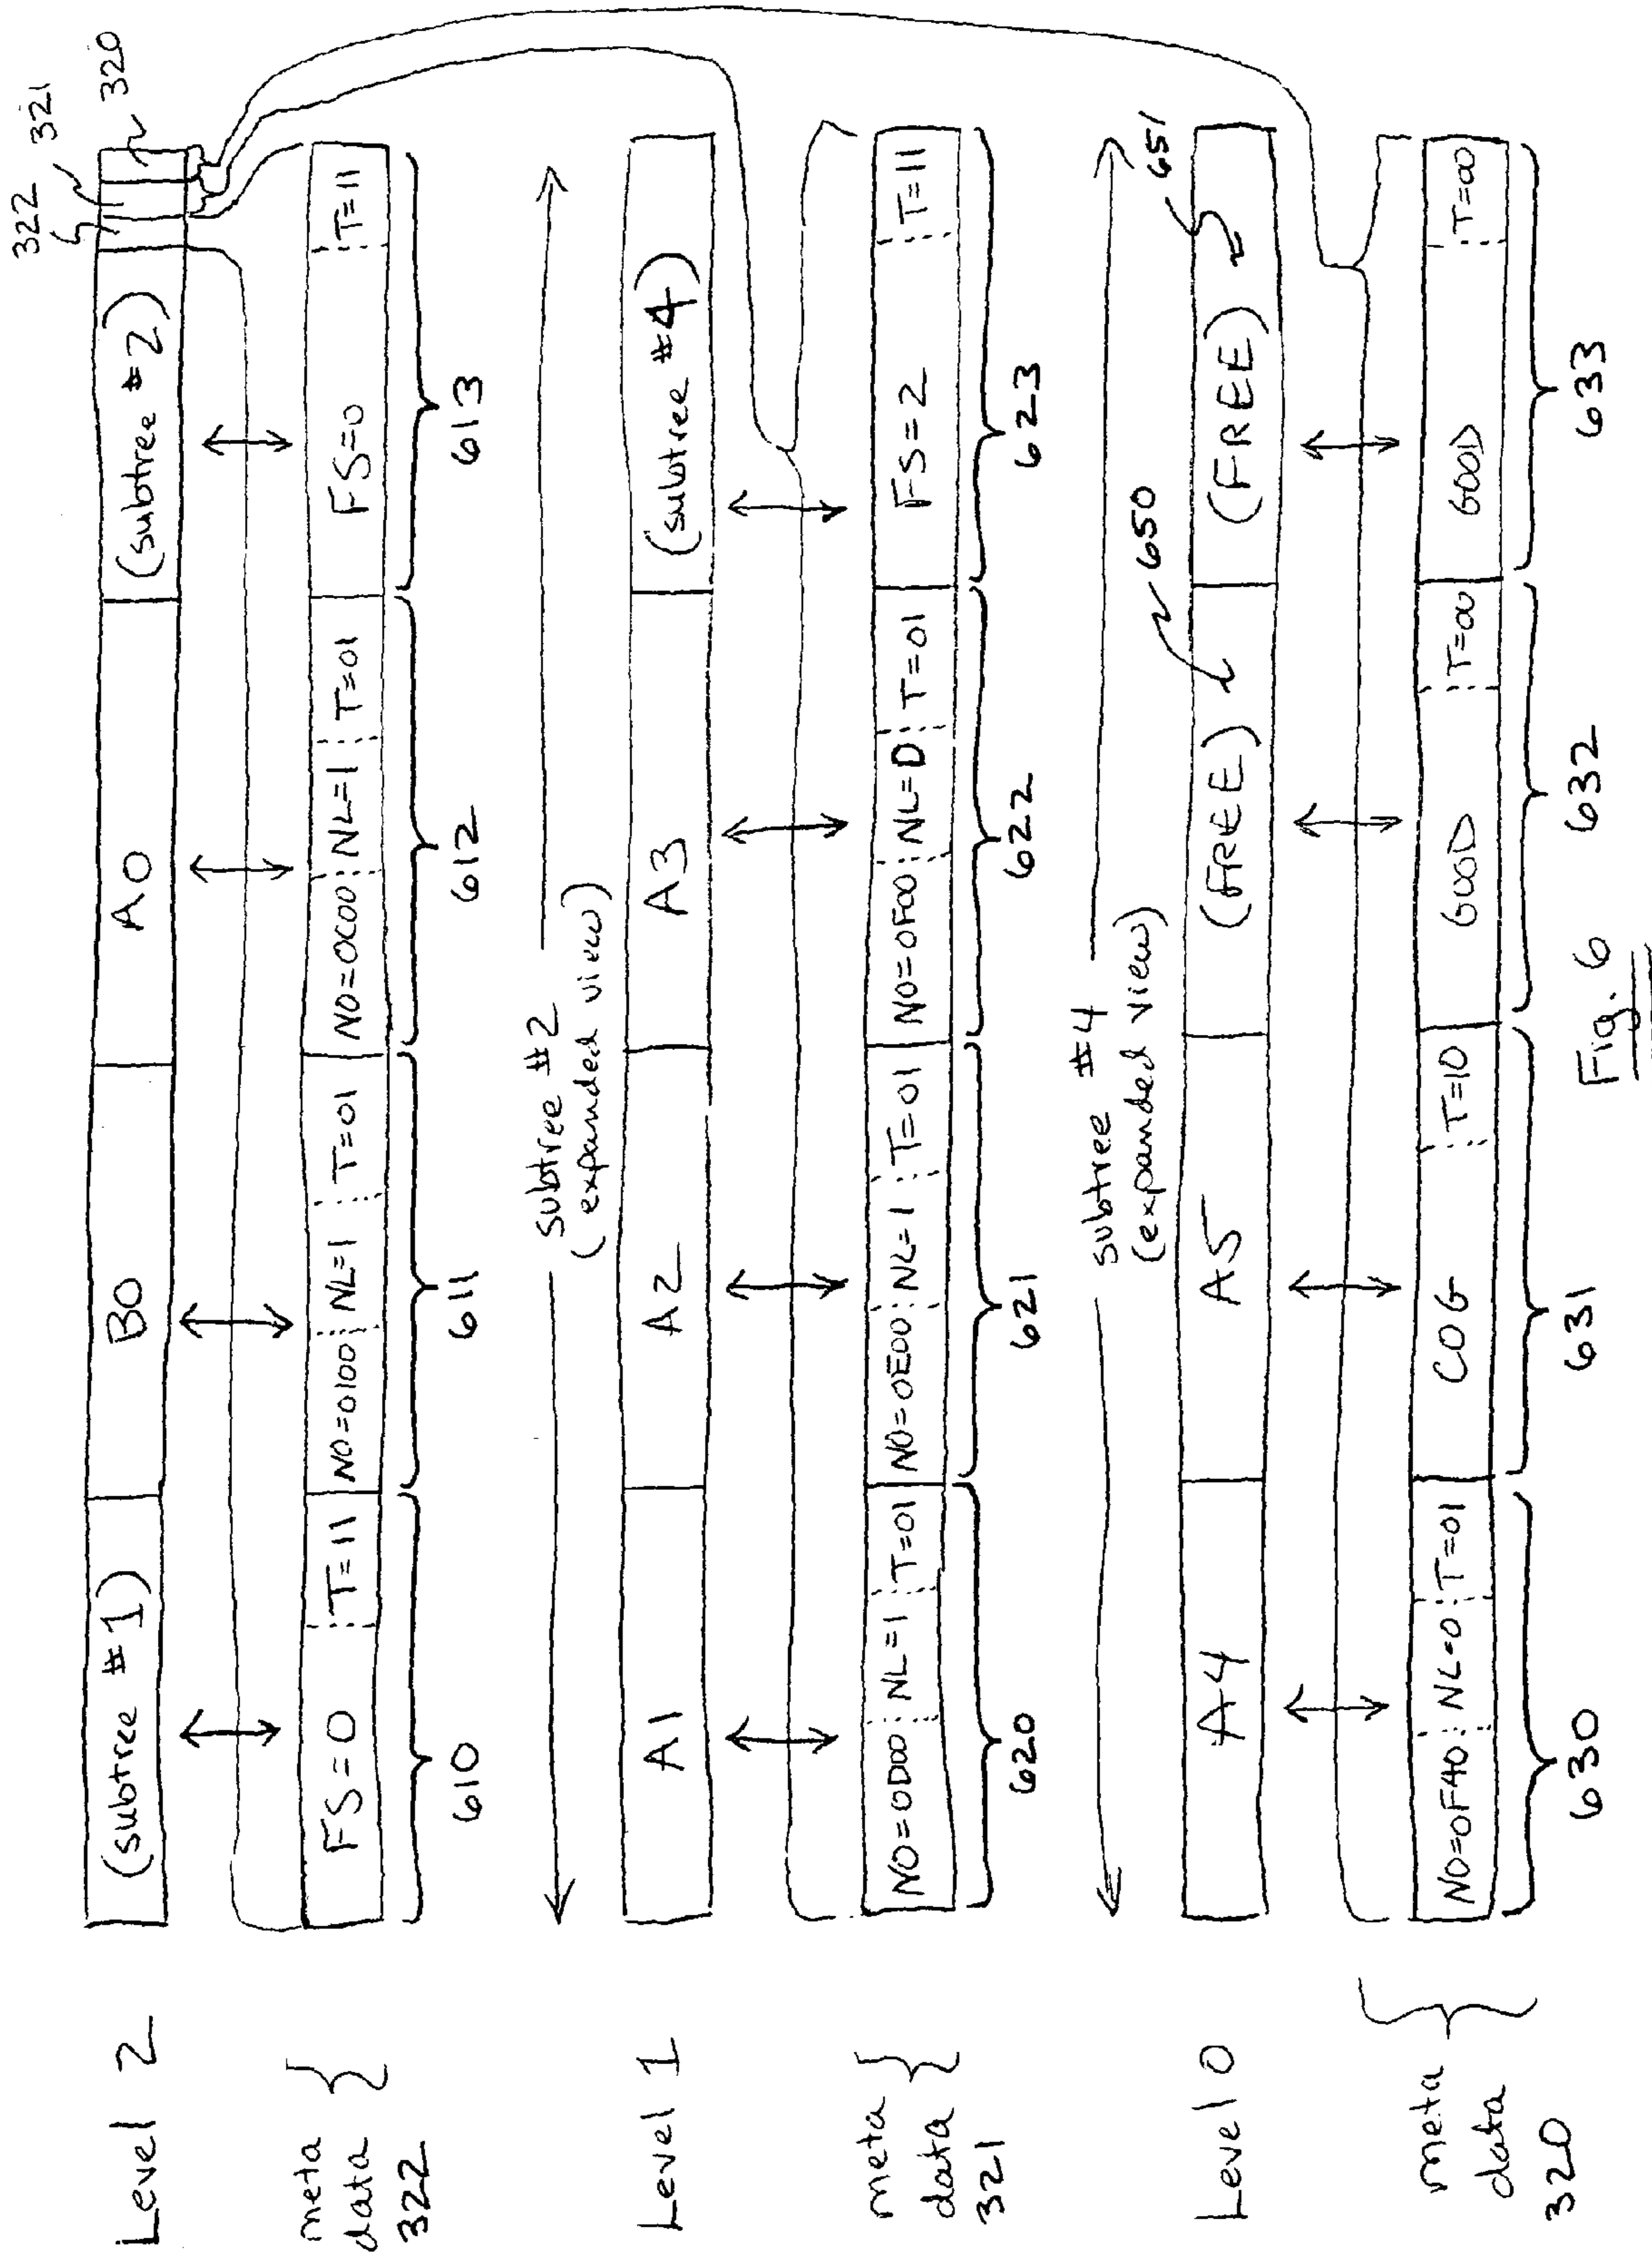 322
321
320
Level 2
(subtree #1)
B0
A0
(subtree #2)
meta
data
322
FS=0
T=11
NO=0100
NL=1
T=01
NO=0C00
NL=1
T=01
FS=0
T=11
610
611
612
613
subtree #2
(expanded view)
Level 1
A1
A2
A3
(subtree #4)
meta
data
321
NO=0D00
NL=1
T=01
NO=0E00
NL=1
T=01
NO=0F00
NL=D
T=01
FS=2
T=11
620
621
622
623
subtree #4
(expanded view)
650
651
Level 0
A4
A5
(FREE)
(FREE)
meta
data
320
NO=0F40
NL=0
T=01
C06
T=10
600D
T=00
600D
T=00
630
631
632
633
Fig. 6